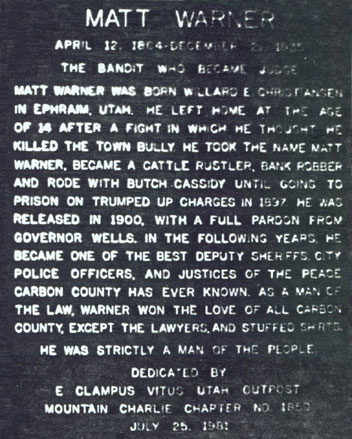 MATT WARNER
APRIL 12, 1864-DECEMBER
THE BANDIT WHO BECAME JUDGE
MATT WARNER WAS BORN WILLARD E. CHRISTIANSEN
IN EPHRAIM, UTAH. HE LEFT HOME AT THE AGE
OF 14 AFTER A FIGHT IN WHICH HE THOUGHT HE
KILLED THE TOWN BULLY. HE TOOK THE NAME MATT
WARNER, BECAME A CATTLE RUSTLER, BANK ROBBER
AND RODE WITH BUTCH CASSIDY UNTIL GOING TO
PRISON ON TRUMPED UP CHARGES IN 1897. HE WAS
RELEASED IN 1900, WITH A FULL PARDON FROM
GOVERNOR WELLS. IN THE FOLLOWING YEARS, HE
BECAME ONE OF THE BEST DEPUTY SHERIFFS, CITY
POLICE OFFICERS, AND JUSTICES OF THE PEACE
CARBON COUNTY HAS EVER KNOWN. AS A MAN OF
THE LAW, WARNER WON THE LOVE OF ALL CARBON
COUNTY, EXCEPT THE LAWYERS, AND STUFFED SHIRTS.
HE WAS STRICTLY A MAN OF THE PEOPLE.
DEDICATED BY
E CLAMPUS VITUS UTAH OUTPOST
MOUNTAIN CHARLIE CHAPTER NO. 1850
JULY 25, 1981